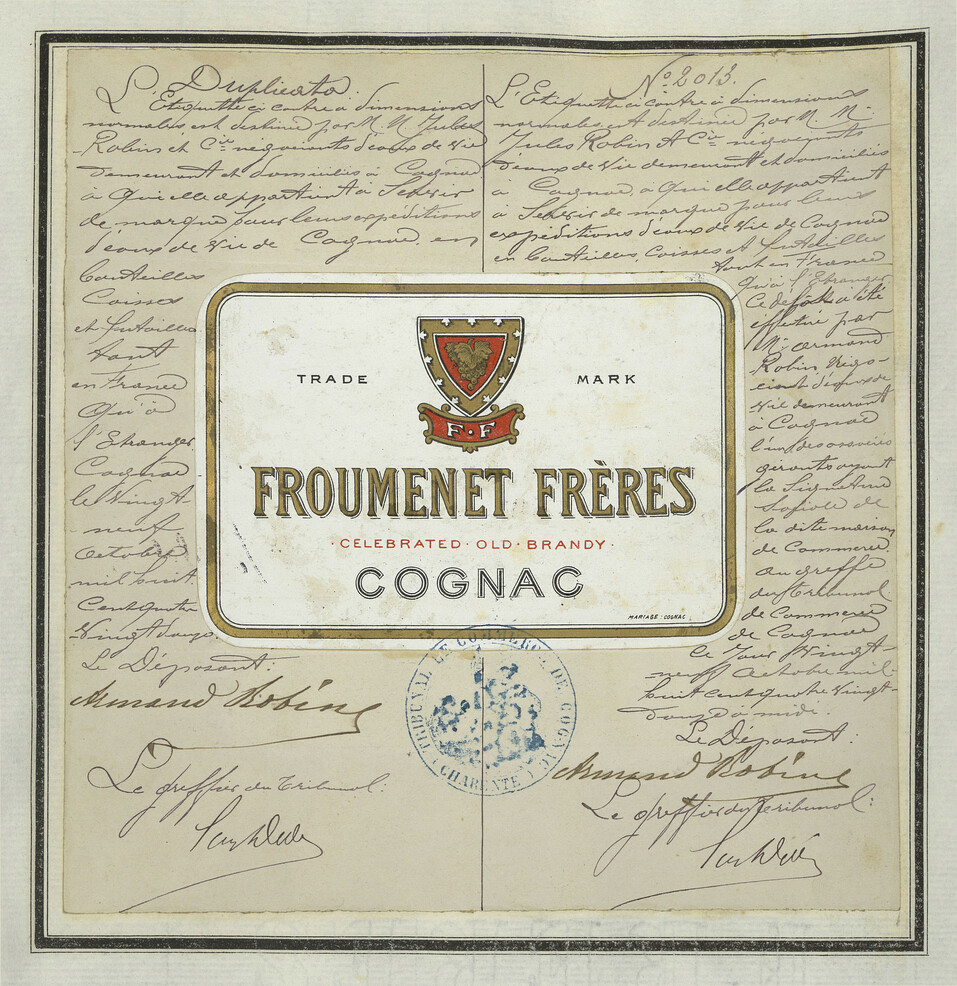 Duplicata.
L'Etiquette ci contre à dimensions
normales est destinée par M. M. Jules
Robin et Cie négociants d'eaux de vie
demeurant et domiciliés à Cognac
à Qui elle appartient à Servir
de marque pour leurs expéditions
d'eaux de vie de Cognac en
bouteilles
Caisses
et futailles
tant
en France
Qu'à
l'Etranger
Cognac
le vingt
neuf
Octobre
mil huit
Cent quatre
Vingt douze
Le Déposant:
Armand Robin
Le greffier du Tribunal:
No 2013.
L'Etiquette ci contre à dimensions
normales est destinée par M. M.
Jules Robin & Cie négociants
d'eaux de vie demeurant et domiciliés
à Cognac, à Qui elle appartient
à Servir de marque pour leurs
expéditions d'eaux de vie de Cognac
en bouteilles, Caisses et futailles
tant en France
qu'à l'Etranger
Ce dépôt a été
effectué par
Mr. Armand
Robin négo-
ciant d'eaux de
vie demeurant
à Cognac
l'un des associés
gérants ayant
la Signature
sociale de
la dite maison
de Commerce.
au greffe
du tribunal
de Commerce
de Cognac
Ce Jour Vingt-
neuf Octobre mil
huit cent quatre vingt-
douze à midi.
Le Déposant:
Armand Robin
Le greffier du Tribunal:
TRADE MARK
F·F
FROUMENET FRÈRES
·CELEBRATED·OLD·BRANDY·
COGNAC
MARIAGE : COGNAC
TRIBUNAL DE COMMERCE DE COGNAC
(CHARENTE)